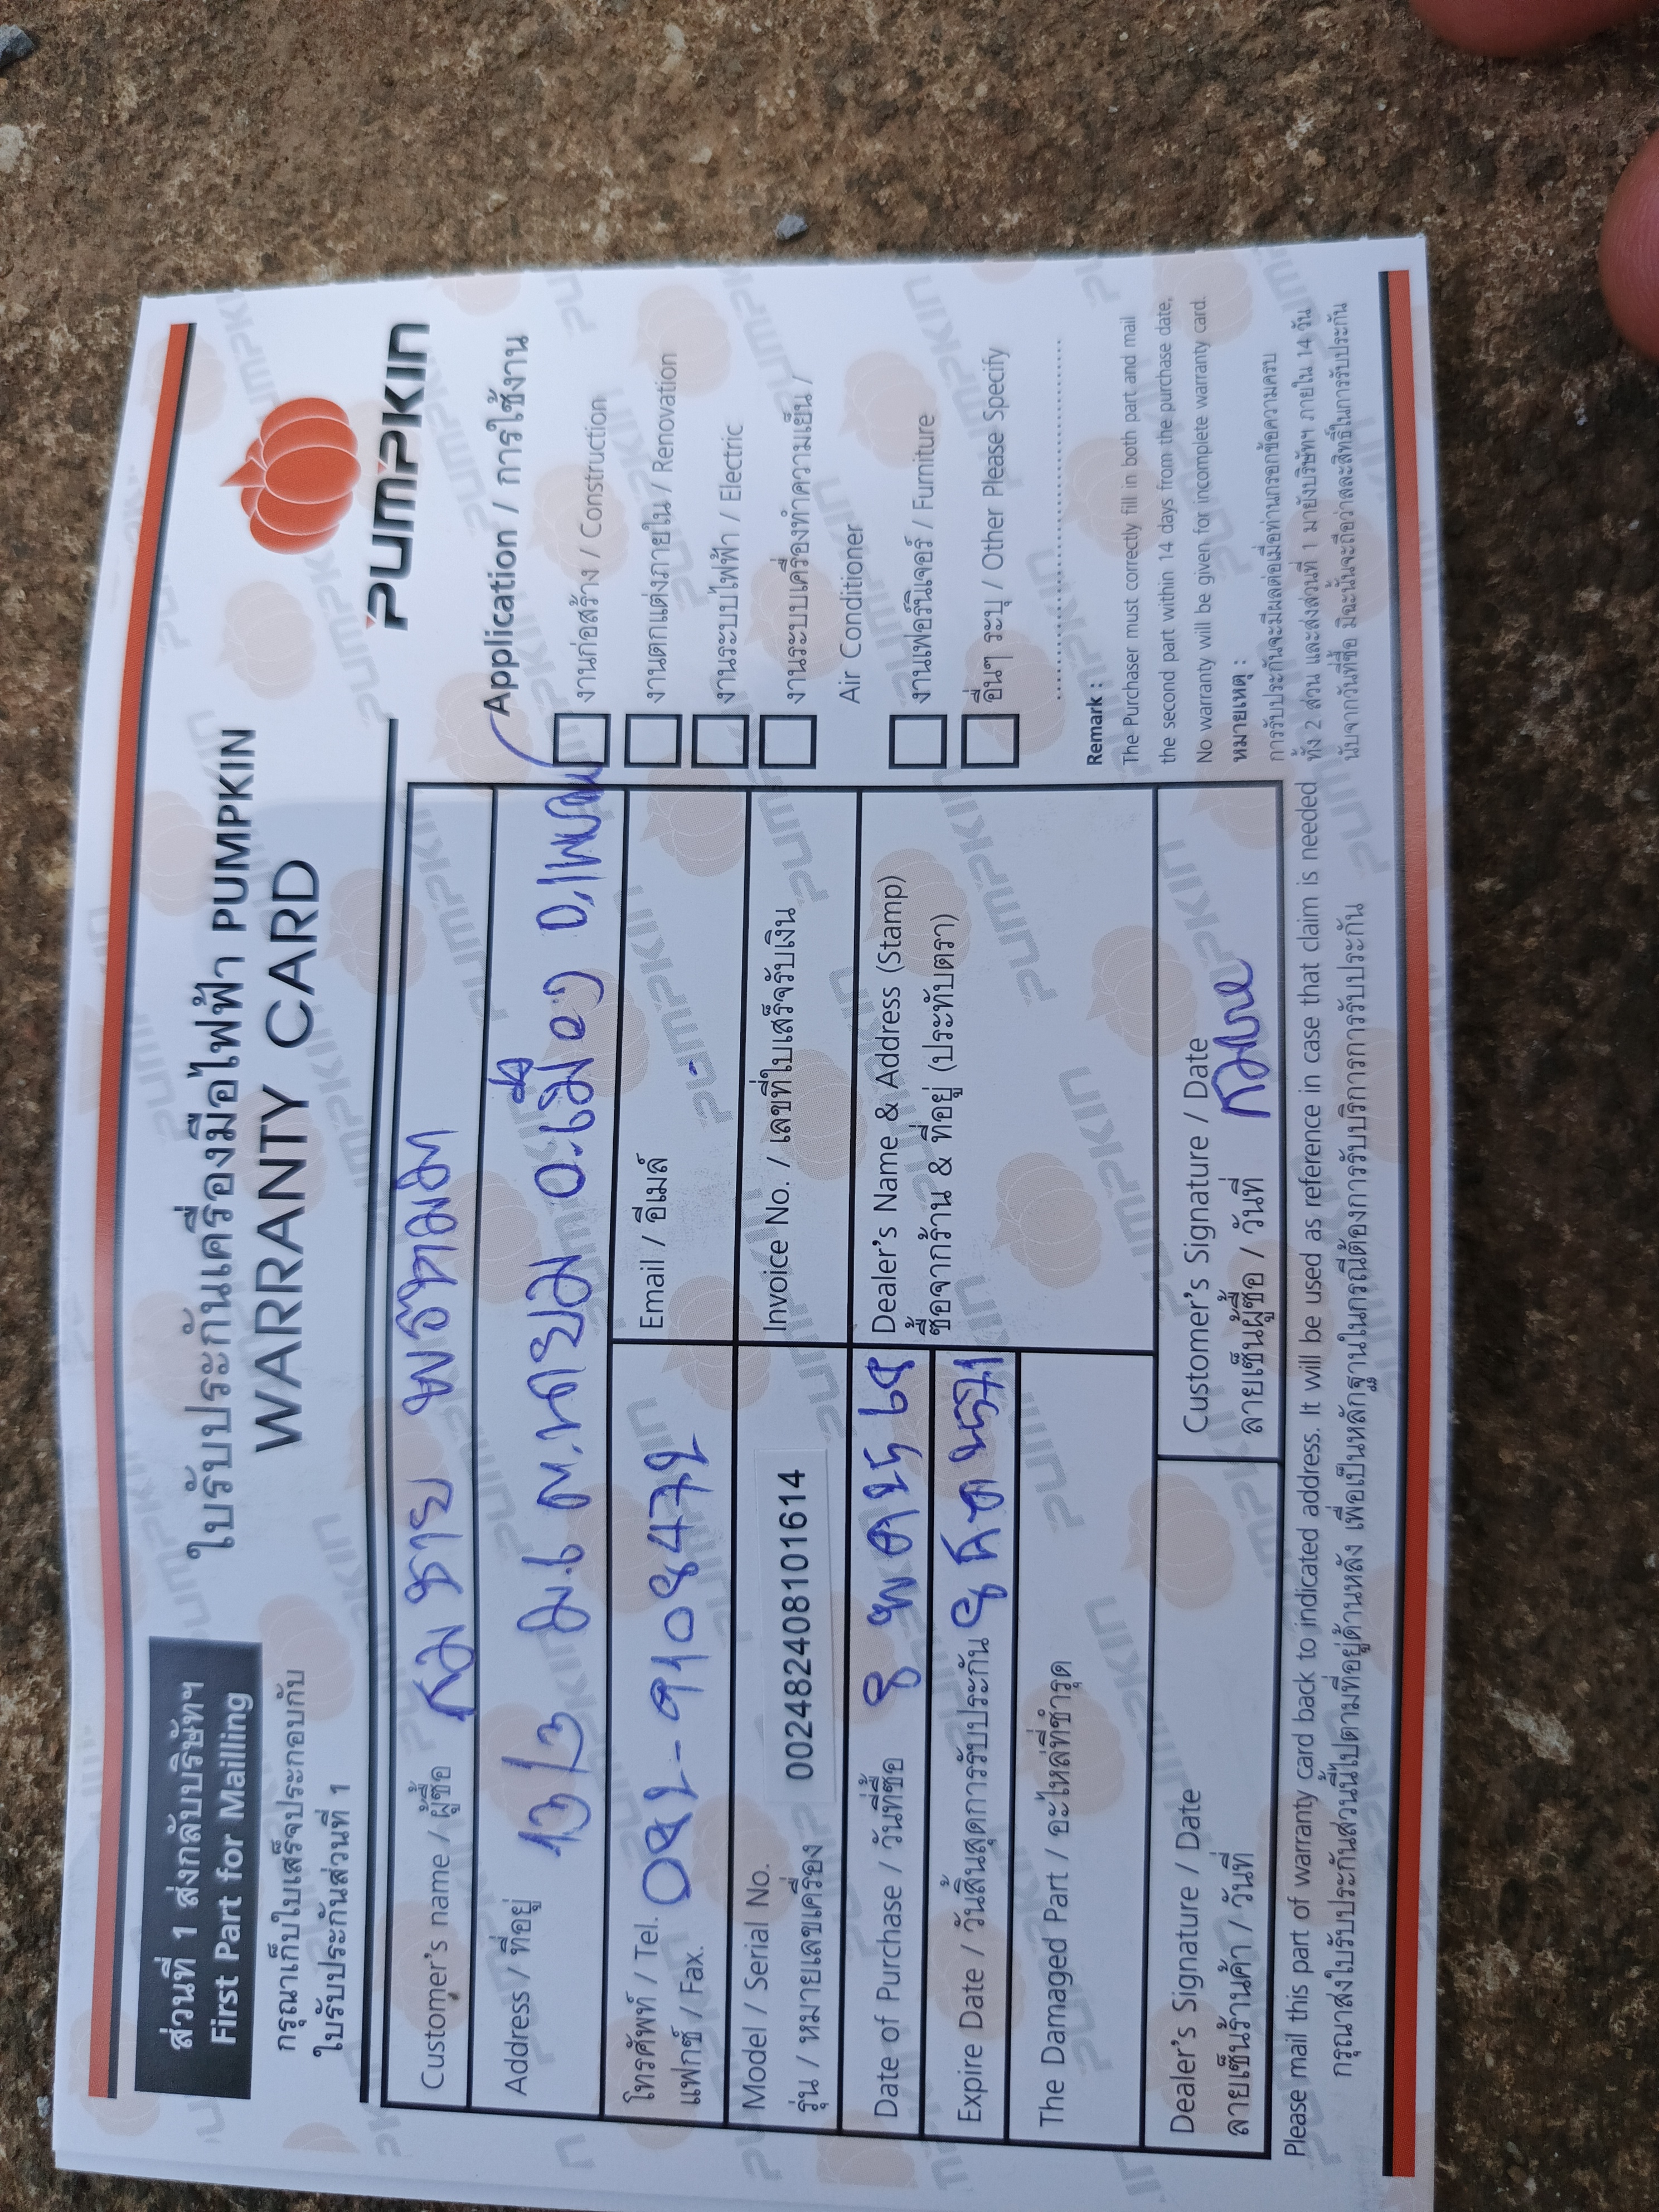 ส่วนที่ 1 ส่งกลับบริษัทฯ
First Part for Mailling
กรุณาเก็บใบเสร็จประกอบกับ
ใบรับประกันส่วนที่ 1
ใบรับประกันเครื่องมือไฟฟ้า PUMPKIN
WARRANTY CARD
PUMPKIN
Customer's name / ผู้ซื้อ สมชาย
Address / ที่อยู่ 13/3 ม.6 ต. อ.เมือง
โทรศัพท์ / Tel.
แฟกซ์ / Fax.
Email / อีเมล์ -
Model / Serial No.
รุ่น / หมายเลขเครื่อง 002482408101614
Invoice No. / เลขที่ใบเสร็จรับเงิน
Date of Purchase / วันที่ซื้อ 8
Expire Date / วันสิ้นสุดการรับประกัน 8
Dealer's Name & Address (Stamp)
ซื้อจากร้าน & ที่อยู่ (ประทับตรา)
The Damaged Part / อะไหล่ที่ชำรุด
Dealer's Signature / Date
ลายเซ็นร้านค้า / วันที่
Customer's Signature / Date
ลายเซ็นผู้ซื้อ / วันที่ สมชาย
Application / การใช้งาน
งานก่อสร้าง / Construction
งานตกแต่งภายใน / Renovation
งานระบบไฟฟ้า / Electric
งานระบบเครื่องทำความเย็น /
Air Conditioner
งานเฟอร์นิเจอร์ / Furniture
อื่นๆ ระบุ / Other Please Specify
Remark :
The Purchaser must correctly fill in both part and mail
the second part within 14 days from the purchase date,
No warranty will be given for incomplete warranty card.
หมายเหตุ :
การรับประกันจะมีผลต่อเมื่อท่านกรอกข้อความครบ
ทั้ง 2 ส่วน และส่งส่วนที่ 1 มายังบริษัทฯ ภายใน 14 วัน
นับจากวันที่ซื้อ มิฉะนั้นจะถือว่าสละสิทธิ์ในการรับประกัน
Please mail this part of warranty card back to indicated address. It will be used as reference in case that claim is needed
กรุณาส่งใบรับประกันส่วนนี้ไปตามที่อยู่ด้านหลัง เพื่อเป็นหลักฐานในกรณีต้องการรับบริการการรับประกัน